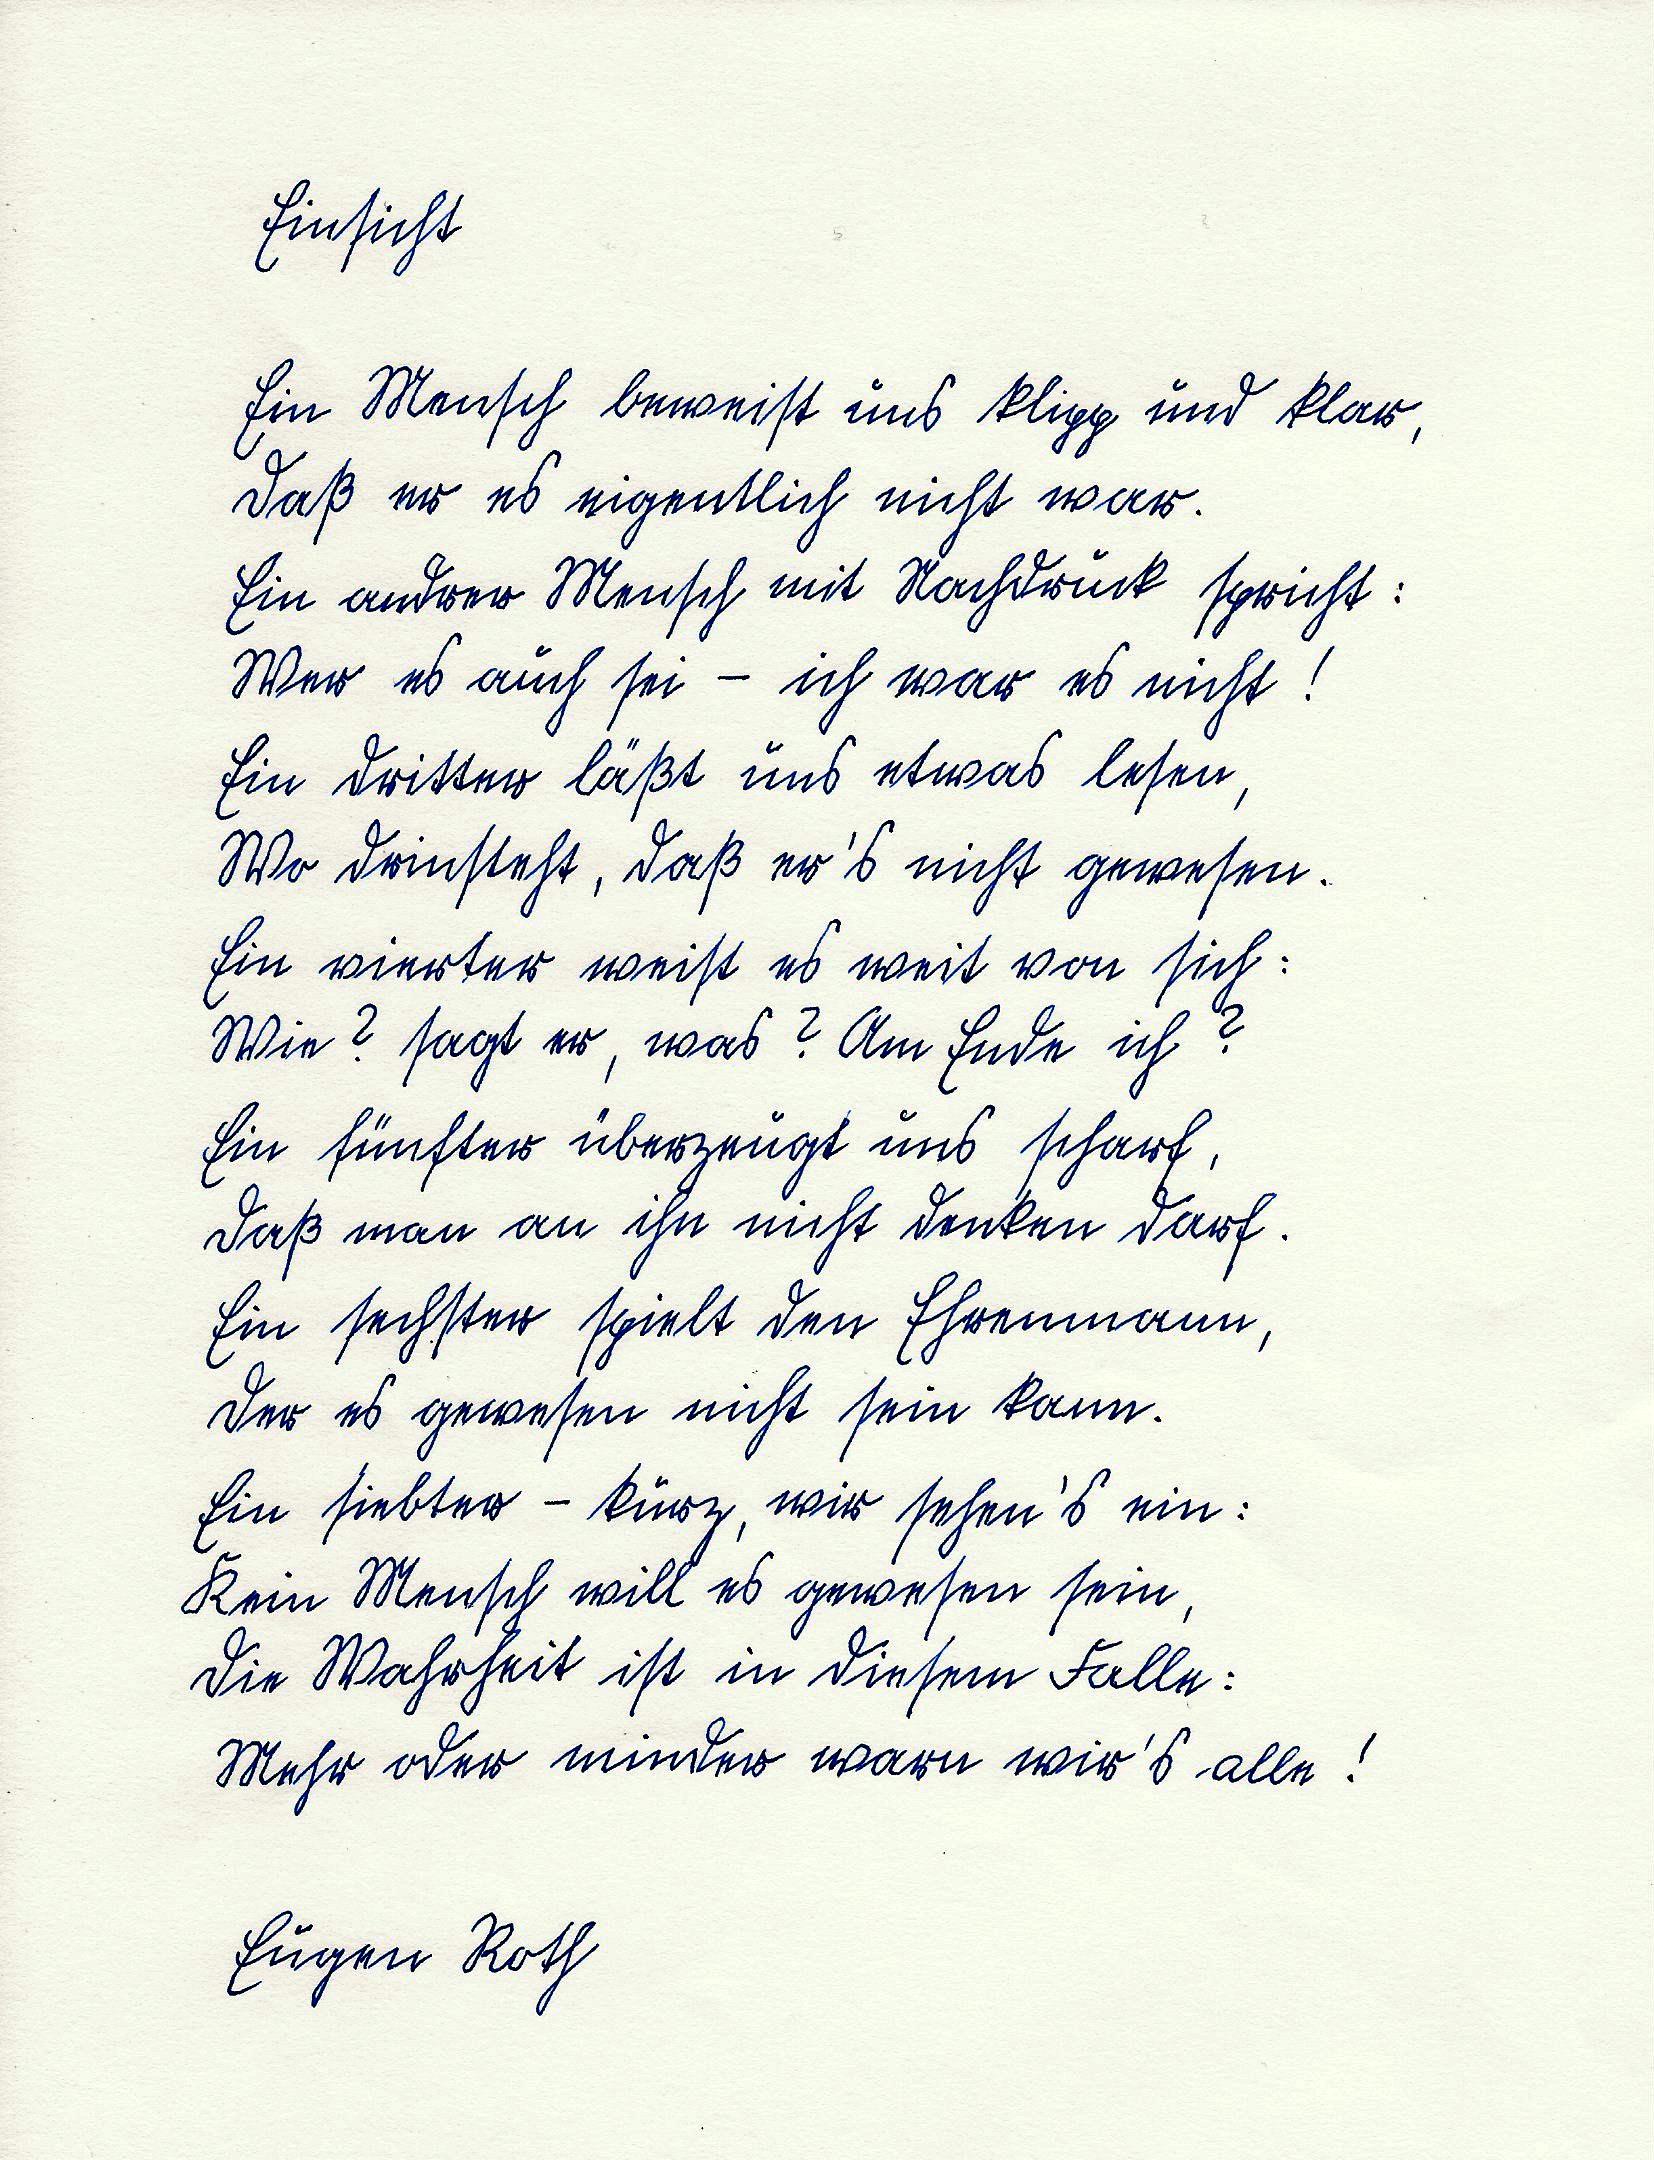 Einsicht
Ein Mensch beweist uns klipp und klar,
Daß er es eigentlich nicht war.
Ein andrer Mensch mit Nachdruck spricht:
Wer es auch sei – ich war es nicht!
Ein dritter läßt uns etwas lesen,
Wo drinsteht, daß er's nicht gewesen.
Ein vierter weist es weit von sich:
Wie? sagt er, was? Am Ende ich?
Ein fünfter überzeugt uns scharf,
Daß man an ihn nicht denken darf.
Ein sechster spielt den Ehrenmann,
Der es gewesen nicht sein kann.
Ein siebter – kurz, wir sehen's ein:
Kein Mensch will es gewesen sein,
Die Wahrheit ist in diesem Falle:
Mehr oder minder warn wir's alle!
Eugen Roth